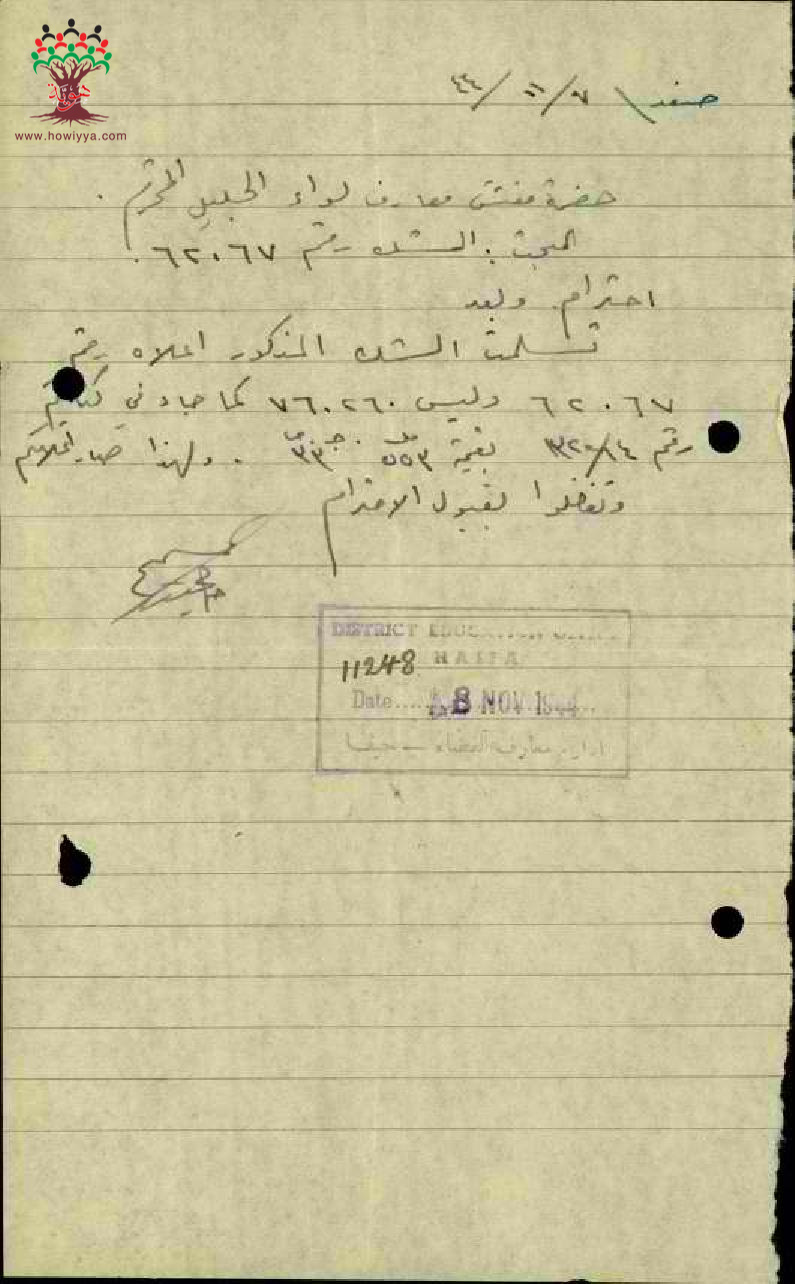 هوية
www.howiyya.com
صفد ٧/١١/٤٤
حضرة مفتش معارف لواء الجليل المحترم.
المبحث: الشك رقم ٦٢٠٦٧.
احترام وبعد
تسلمت الشك المذكور اعلاه رقم
٦٢٠٦٧ وليس ٧٦٠٢٦٠ كما جاء في كتابكم
رقم بقيمة ٥٥٣ مل ٣٣ ج. ولهذا صار اعلامكم
وتفضلوا بقبول الاحترام
DISTRICT EDUCATION OFFICE
11248 HAIFA
Date 8 NOV 1944
ادارة معارف القضاء - حيفا